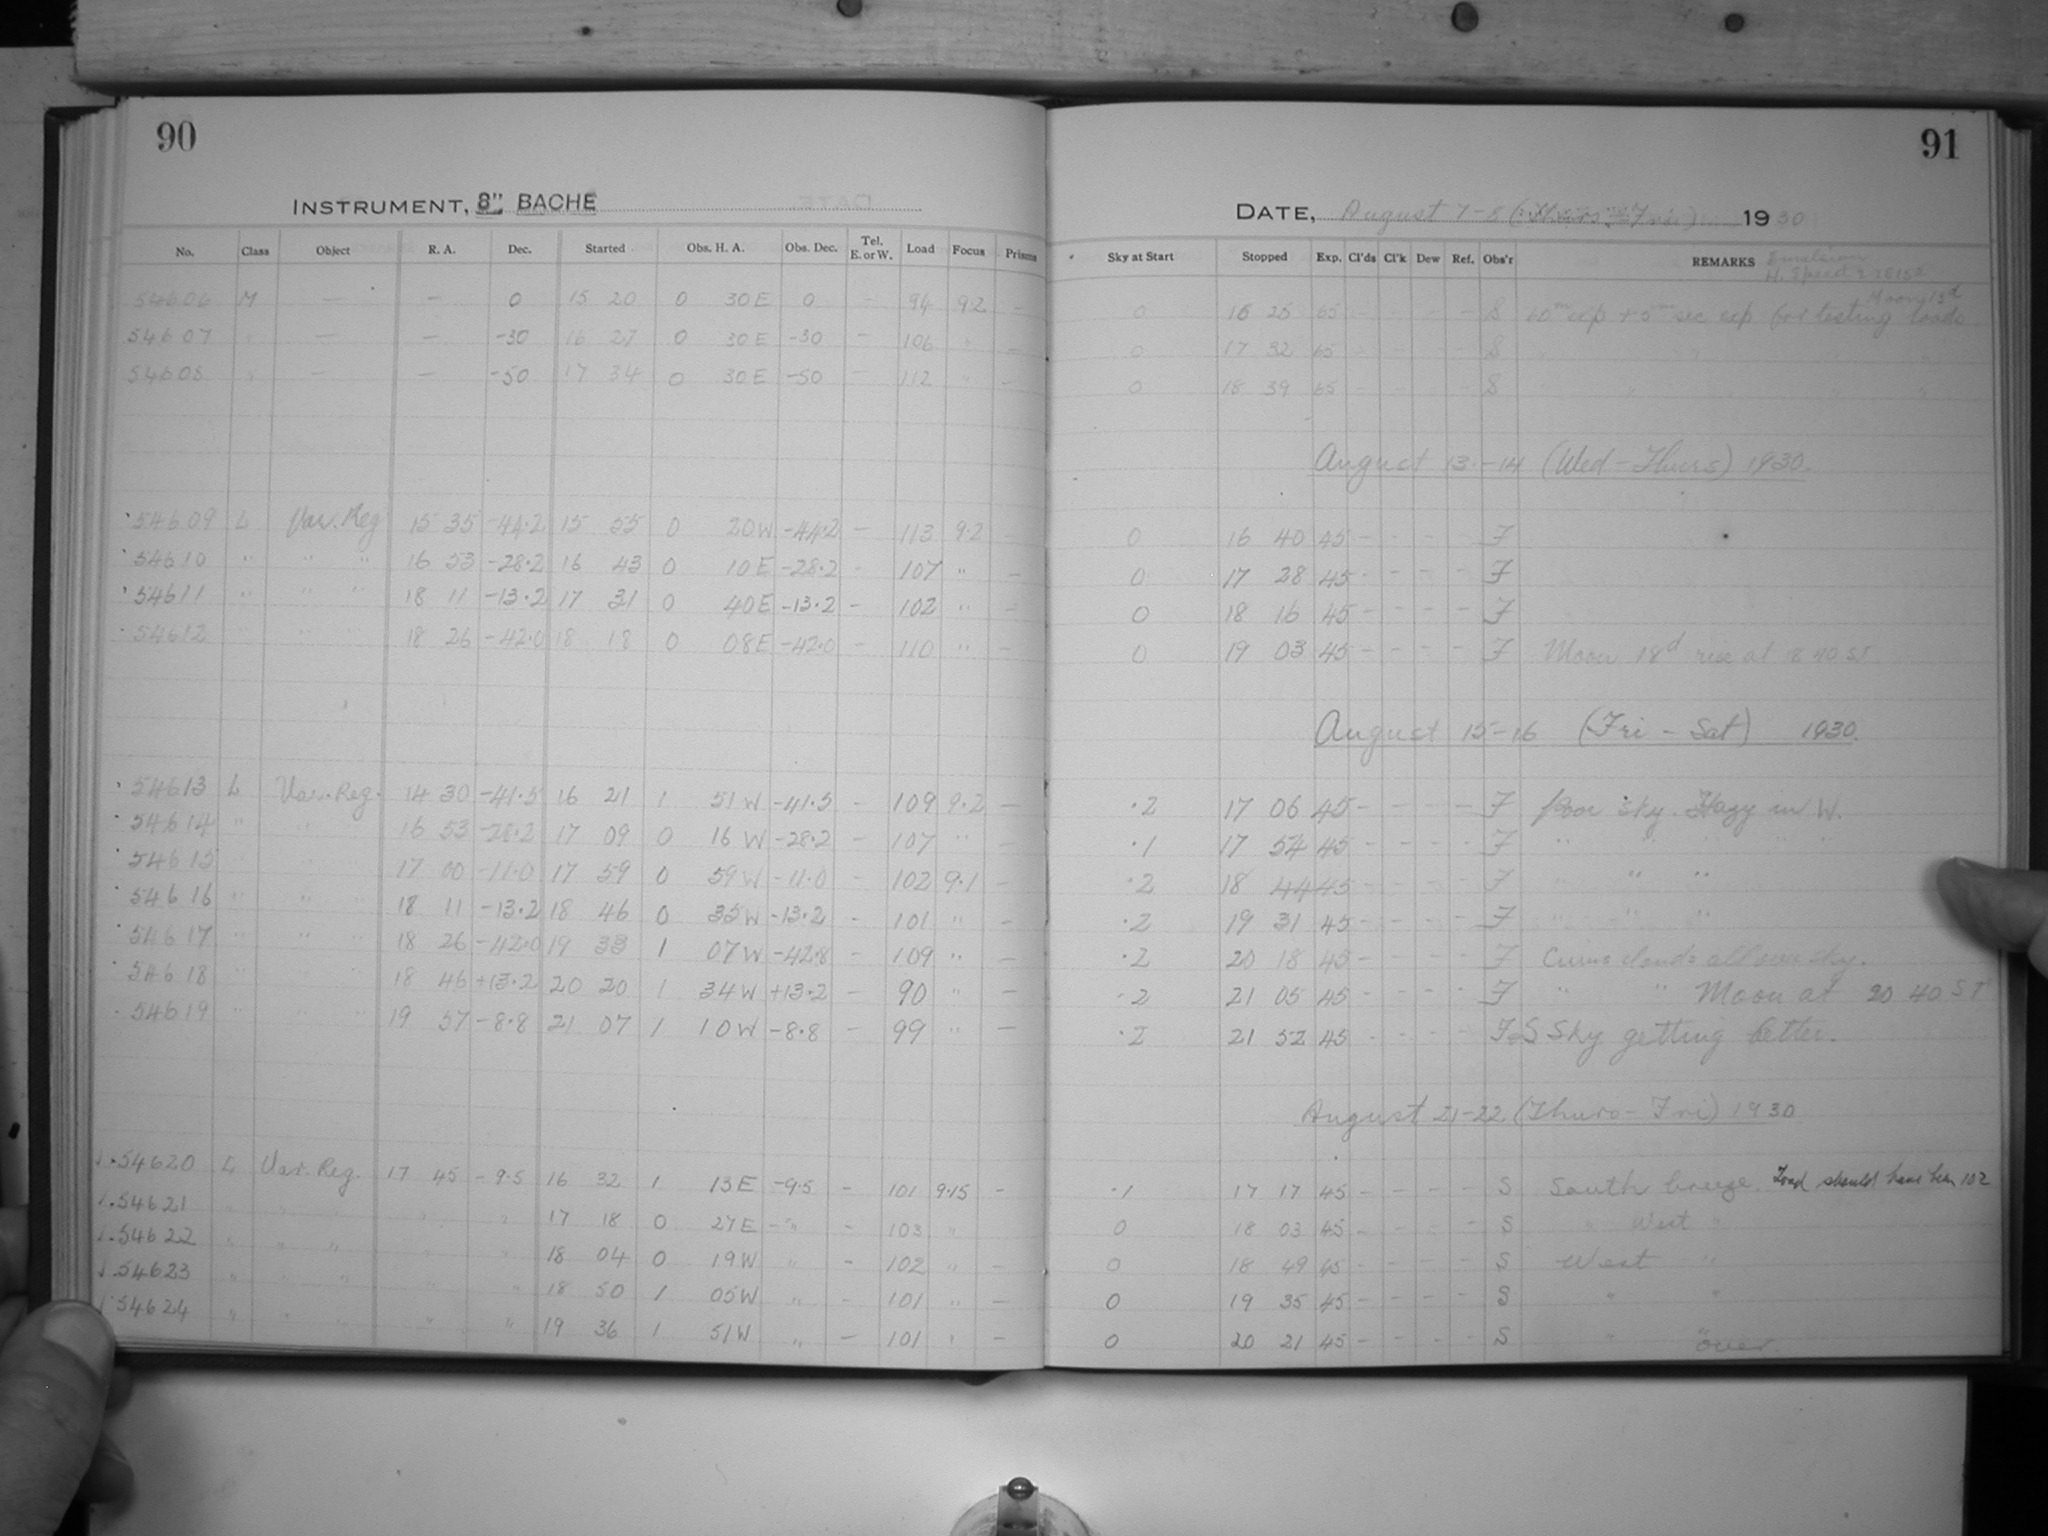 90
INSTRUMENT, 8" BACHE
No. Class Object R. A. Dec. Started Obs. H. A. Obs. Dec. Tel. E. or W. Load Focus Prisms
54606 M — — 0 15 20 0 30E 0 — 94 9.2 —
54607 " — — -30 16 27 0 30E -30 — 106 " —
54608 " — — -50 17 34 0 30E -50 — 112 " —
54609 L Var. Reg 15 35 -44.2 15 55 0 20W -44.2 — 113 9.2 —
54610 " " " 16 53 -28.2 16 43 0 10E -28.2 — 107 " —
54611 " " " 18 11 -13.2 17 31 0 40E -13.2 — 102 " —
54612 " " " 18 26 -42.0 18 18 0 08E -42.0 — 110 " —
54613 L Var. Reg. 14 30 -41.5 16 21 1 51W -41.5 — 109 9.2 —
54614 " " 16 53 -28.2 17 09 0 16W -28.2 — 107 " —
54615 " " 17 00 -11.0 17 59 0 59W -11.0 — 102 9.1 —
54616 " " " 18 11 -13.2 18 46 0 35W -13.2 — 101 " —
54617 " " " 18 26 -42.0 19 33 1 07W -42.8 — 109 " —
54618 " " " 18 46 +13.2 20 20 1 34W +13.2 — 90 " —
54619 " " 19 57 -8.8 21 07 1 10W -8.8 — 99 " —
54620 L Var. Reg. 17 45 -9.5 16 32 1 13E -9.5 — 101 9.15 —
54621 " " " " " 17 18 0 27E -" — 103 "
54622 " " " " " 18 04 0 19W " — 102 " —
54623 " " " " " 18 50 1 05W " — 101 " —
54624 " " " " " 19 36 1 51W " — 101 " —
91
DATE, August 7-8 (Thurs-Fri) 1930
Sky at Start Stopped Exp. Cl'ds Cl'k Dew Ref. Obs'r REMARKS
Emulsion
H. Speed
Moon 13d
0 16 25 65 — — — — S 60m exp + 5m sec exp for testing loads
0 17 32 65 — — — — S " " " "
0 18 39 65 — — — — S " " " "
August 13-14 (Wed-Thurs) 1930.
0 16 40 45 — — — — F
0 17 28 45 — — — — F
0 18 16 45 — — — — F
0 19 03 45 — — — — F Moon 18d rise at 18 40 ST
August 15-16 (Fri - Sat) 1930.
.2 17 06 45 — — — — F Poor sky. Hazy in W.
.1 17 54 45 — — — — F " " " "
.2 18 44 45 — — — — F " " "
.2 19 31 45 — — — — F " " "
.2 20 18 45 — — — — F Cirrus clouds all over sky.
.2 21 05 45 — — — — F " " Moon at 20 40 ST
.2 21 52 45 — — — — F-S Sky getting better.
August 21-22 (Thurs-Fri) 1930
.1 17 17 45 — — — — S South breeze. Load should have been 102
0 18 03 45 — — — — S " West "
0 18 49 45 — — — — S West "
0 19 35 45 — — — — S " "
0 20 21 45 — — — — S " "
over.